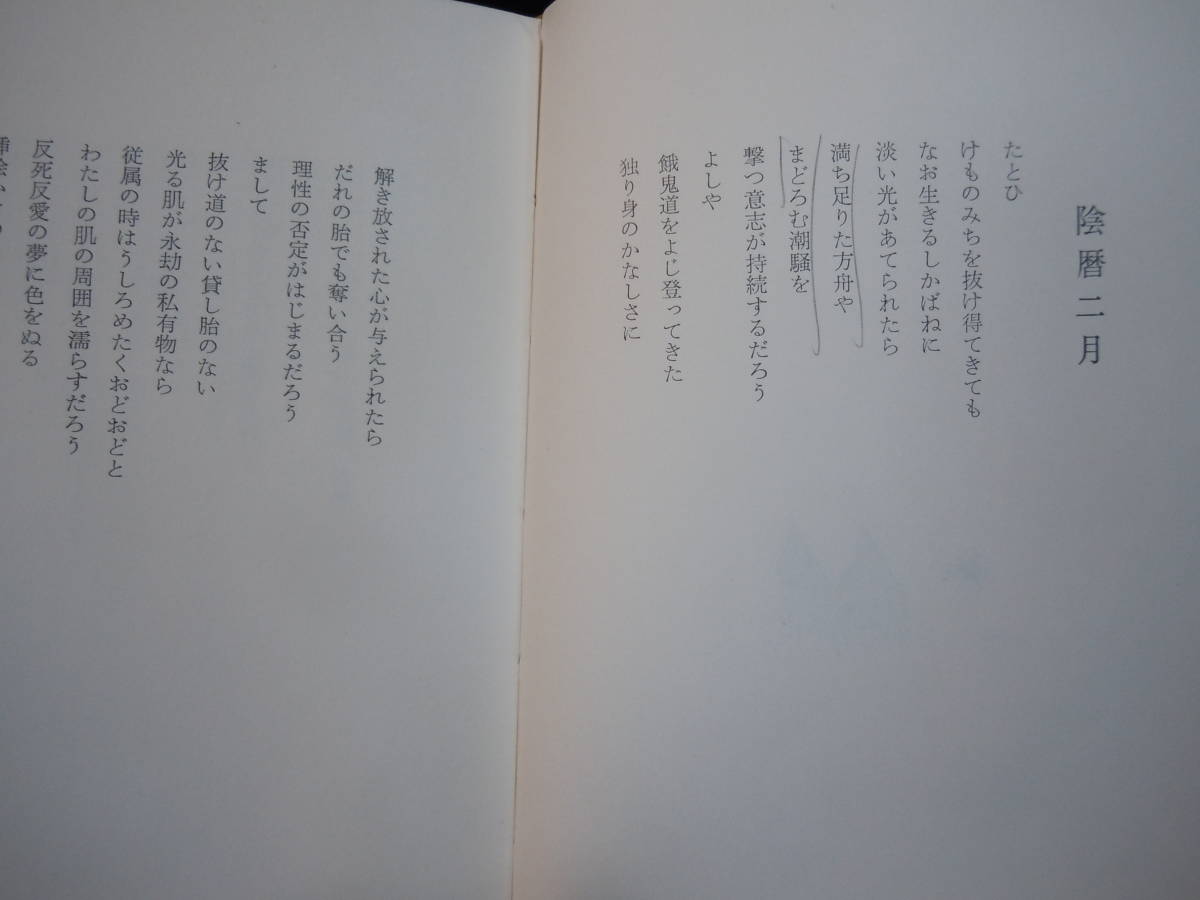 陰暦二月
たとひ
けものみちを抜け得てきても
なお生きるしかばねに
淡い光があてられたら
満ち足りた方舟や
まどろむ潮騒を
撃つ意志が持続するだろう
よしや
餓鬼道をよじ登ってきた
独り身のかなしさに
解き放された心が与えられたら
だれの胎でも奪い合う
理性の否定がはじまるだろう
まして
抜け道のない貸し胎のない
光る肌が永劫の私有物なら
従属の時はうしろめたくおどおどと
わたしの肌の周囲を濡らすだろう
反死反愛の夢に色をぬる